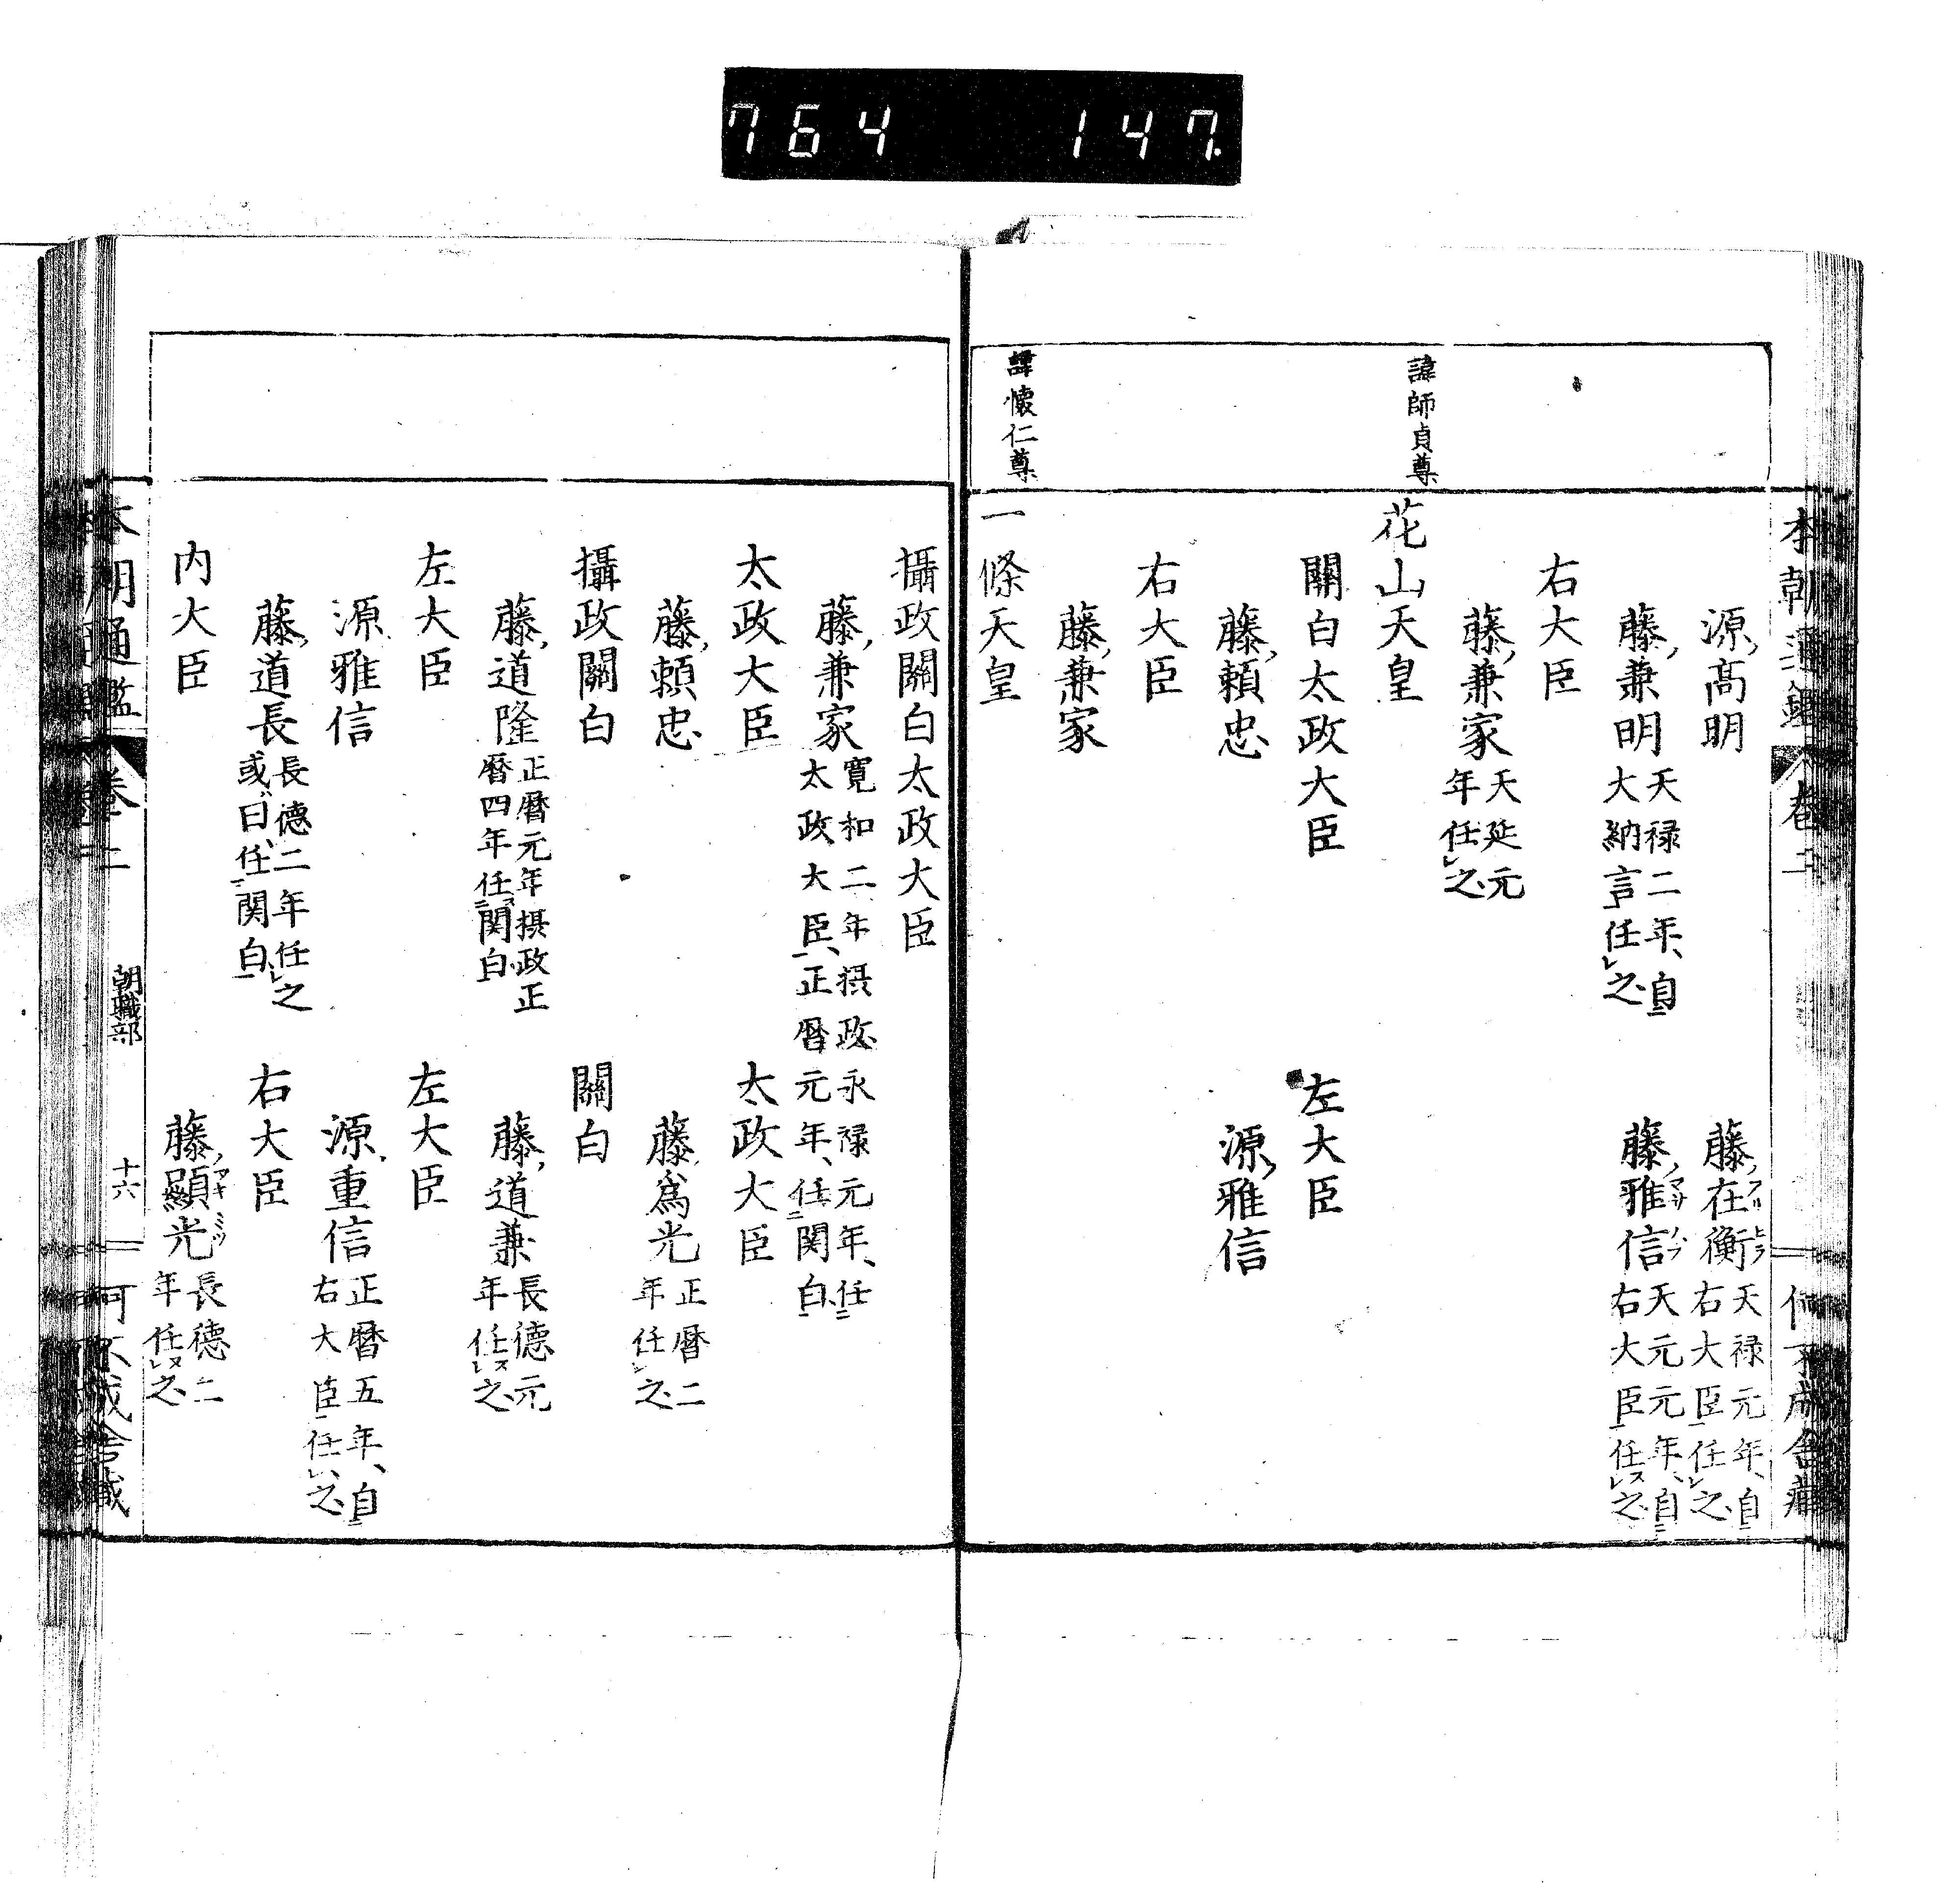 764 147.
源高明
藤在衡アリヒラ天禄元年、自右大臣任之
藤兼明天禄二年、自大納言任之
藤雅信マサノブ天元元年、自右大臣任之
右大臣
藤兼家天延元年任之
諱師貞尊
花山天皇
關白太政大臣
左大臣
藤頼忠
源雅信
右大臣
藤兼家
諱懷仁尊
一條天皇
攝政關白太政大臣
藤兼家寛和二年摂政永禄元年、任太政大臣、正暦元年、任関白
太政大臣
太政大臣
藤頼忠
藤為光正暦二年任之
攝政關白
關白
藤道隆正暦元年摂政正暦四年任関白
藤道兼長德元年任之
左大臣
左大臣
源雅信
源重信正暦五年、自右大臣任之
藤道長長德二年任之或曰、任関白
右大臣
内大臣
藤顯光アキミツ長德二年任之
本朝通鑑 卷二 朝職部 十六